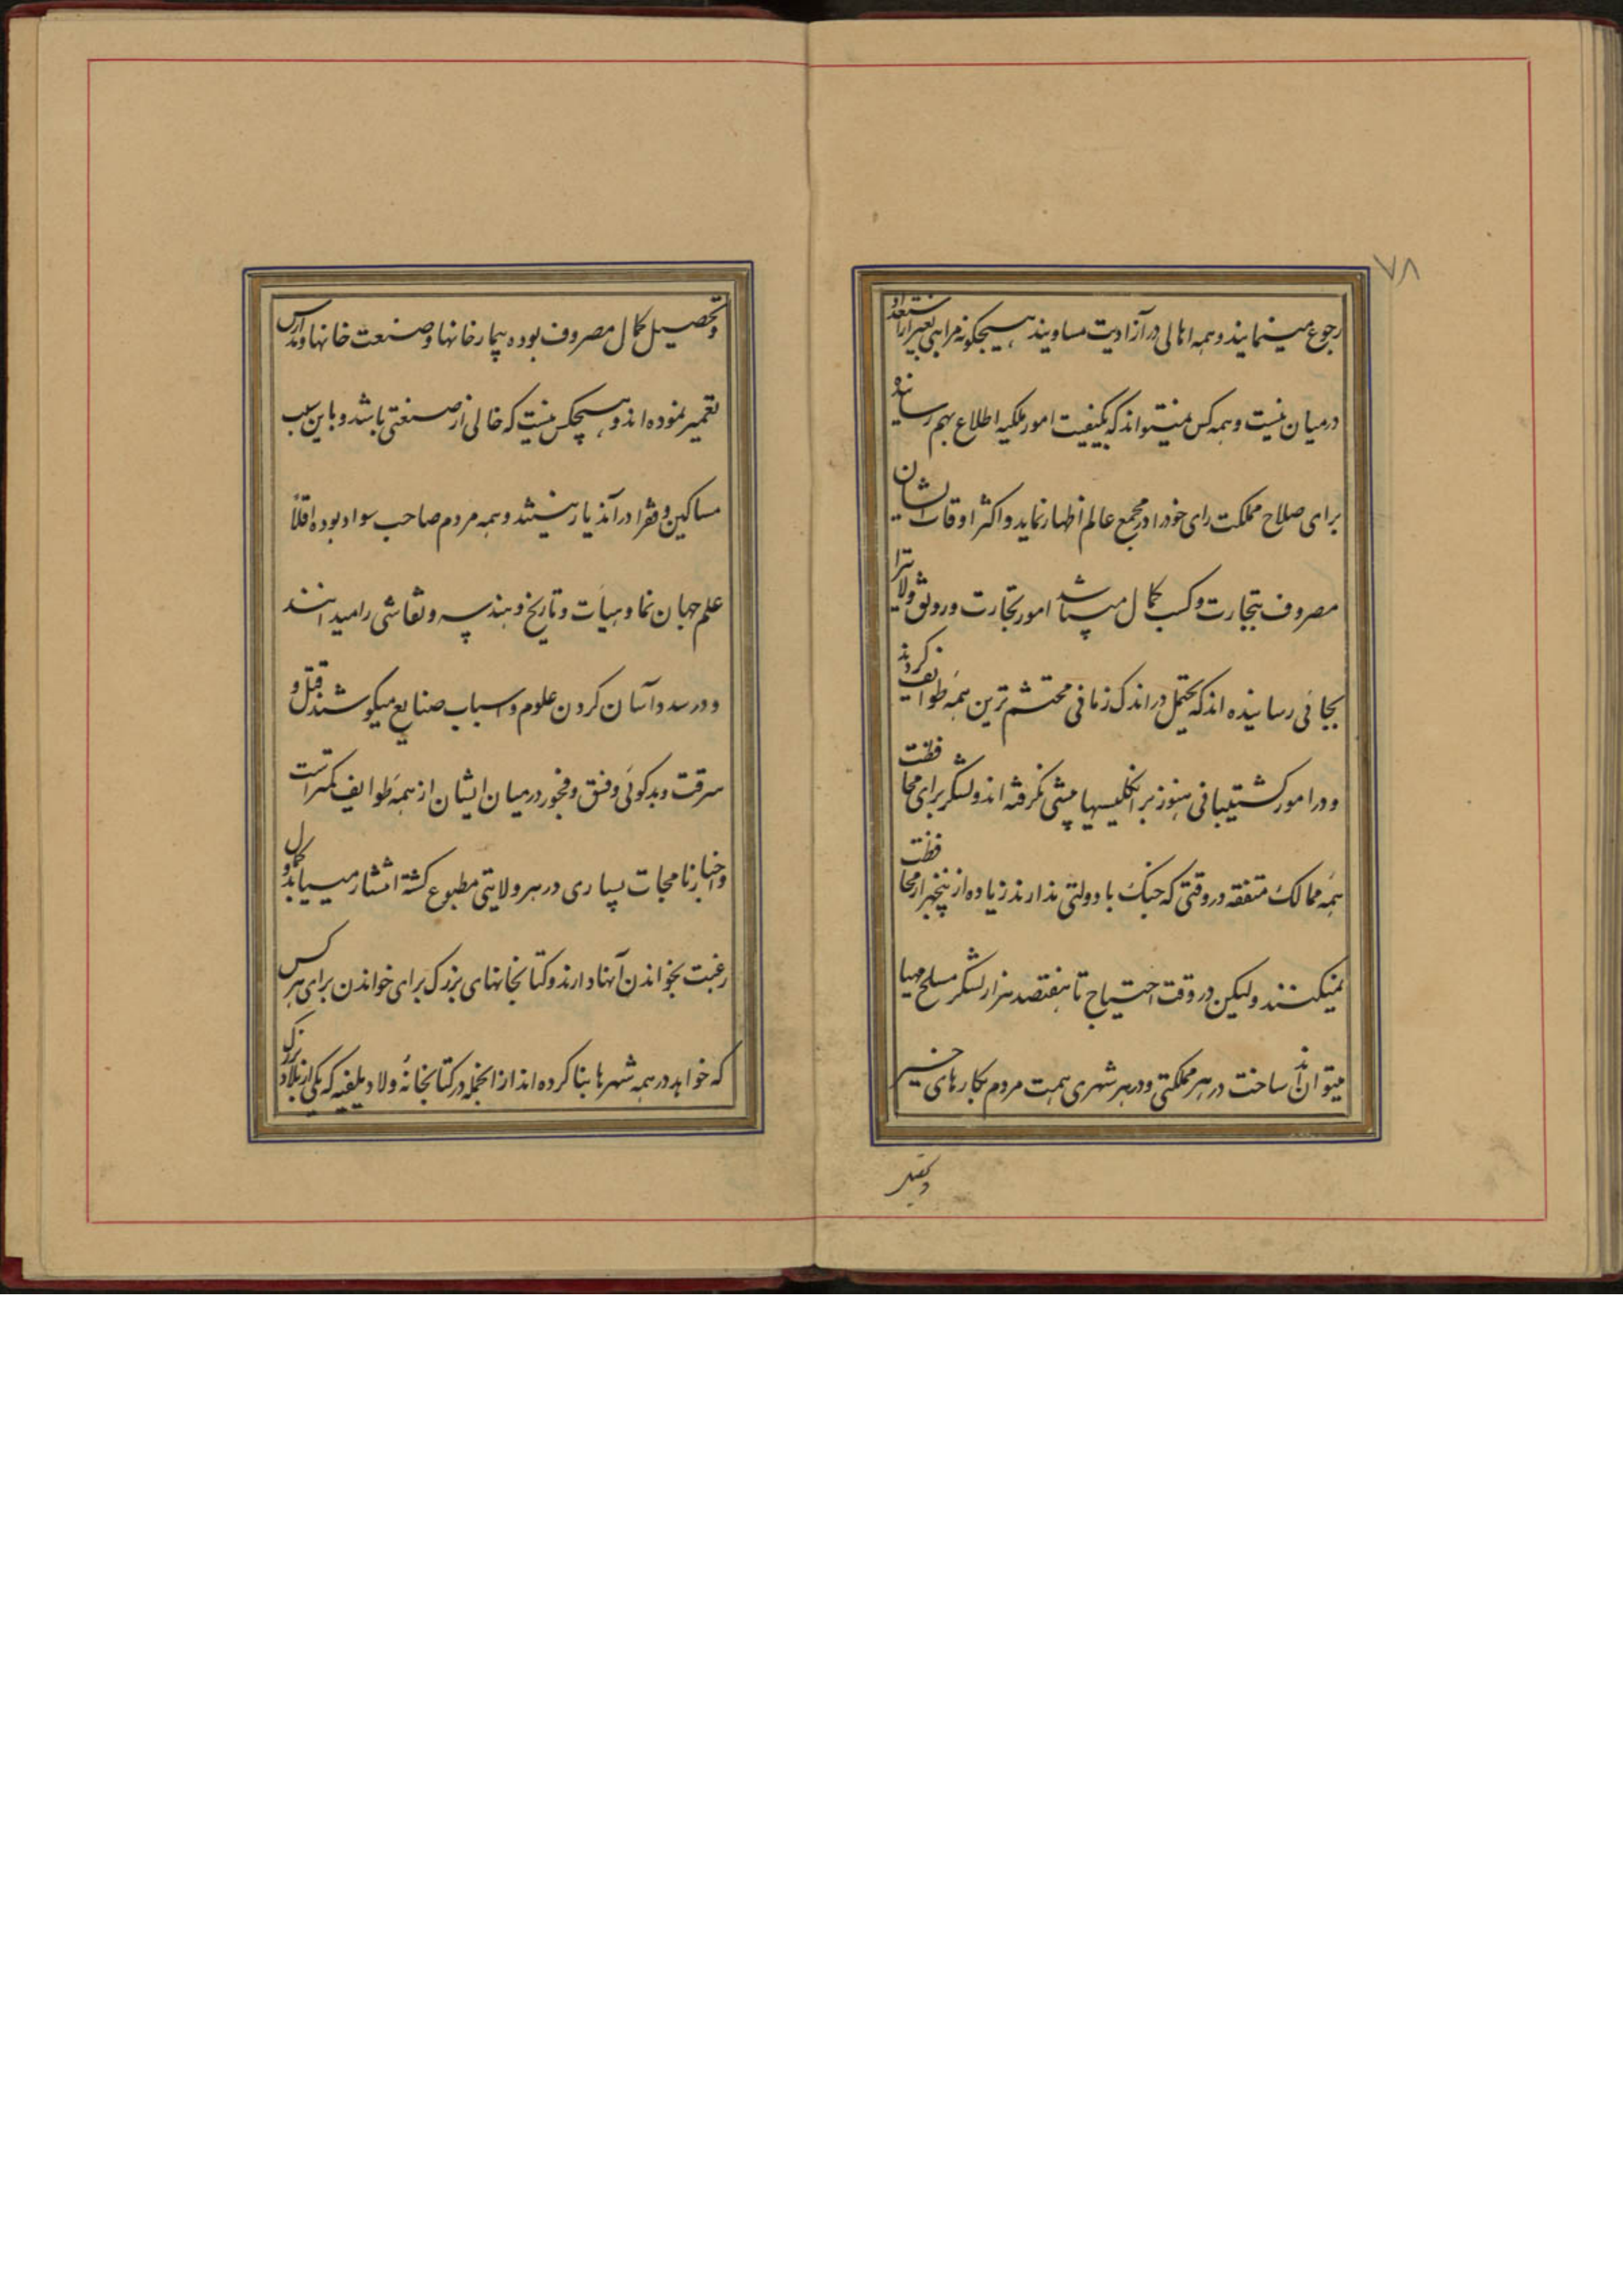 ۷۸
رجوع مینمایند و همه اهالی در آزادیت مساویند هیچگونه مراتبی بغیر از استعداد
در میان نیست و همه کس میتواند که بکیفیت امور ملکیه اطلاع بهم رسانیده
برای صلاح مملکت رای خود را در مجمع عالم اظهار نماید و اکثر اوقات ایشان
مصروف بتجارت و کسب کمال میباشد امور تجارت و رونق ولایترا
بجائی رسانیده اند که یحتمل در اندک زمانی محتشم ترین همهٔ طوایف گردند
و در امور کشتیبانی هنوز بر انگلیسیها پیشی نگرفته اند و لشکر برای محافظت
همهٔ ممالک متفقه در وقتی که جنگ با دولتی ندارند زیاده از پنجهزار محافظت
نمیکنند ولیکن در وقت احتیاج تا هفتصد هزار لشکر مسلح مهیا
میتوانند ساخت در هر مملکتی و در هر شهری همت مردم بکارهای خیر
و تحصیل کمال مصروف بوده بیمارخانها و صنعت خانها و مدارس
تعمیر نموده اند و هیچکس نیست که خالی از صنعتی باشد و باین سبب
مساکین و فقرا در آندیار نیستند و همه مردم صاحب سواد بوده اقلاً
علم جهان نما و هیأت و تاریخ و هندسه و نقاشی را میدانند
و در سدد آسان کردن علوم و اسباب صنایع میکوشند قتل و
سرقت و بدگوئی و فسق و فجور در میان ایشان از همهٔ طوایف کمتر است
و اخبارنامجات بسیاری در هر ولایتی مطبوع گشته انتشار مییابد و کمال
رغبت بخواندن آنها دارند و کتابخانهای بزرگ برای خواندن برای هر کس
که خواهد در همه شهرها بنا کرده اند از انجمله در کتابخانهٔ ولادیلفیه که یکی از بلاد بزرگ